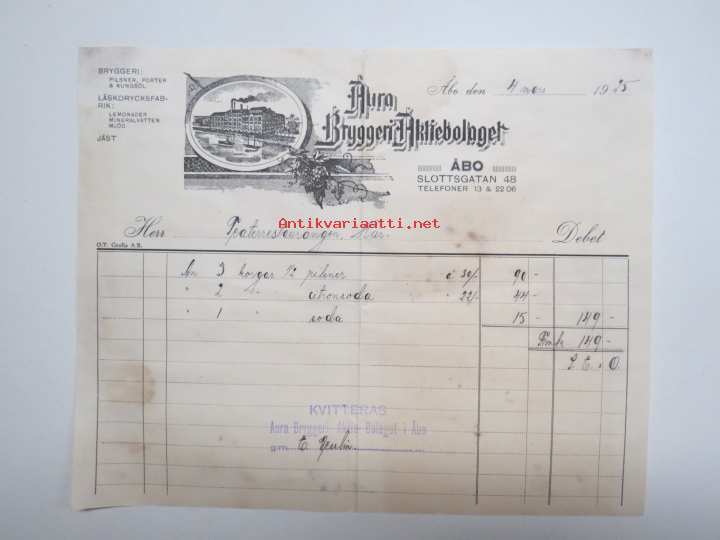 BRYGGERI:
PILSNER, PORTER
& KUNGSÖL
LÄSKDRYCKSFAB-
RIK:
LEMONADER
MINERALVATTEN
MJÖD
JÄST
Åbo den 4 mars 1925
Aura
Bryggeri Aktiebolaget
ÅBO
SLOTTSGATAN 48
TELEFONER 13 & 22 06
Antikvariaatti.net
Herr Teaterrestaurangen, Debet
O.Y. Grafia A.B.
An 3 korgar 1/2 pilsner à 30/- 90 -
" 2 " citronsoda " 22/- 44 -
" 1 soda 15 - 149 -
Fmk 149 -
S. E. & O.
KVITTERAS
Aura Bryggeri Aktie Bolaget i Åbo
gm E